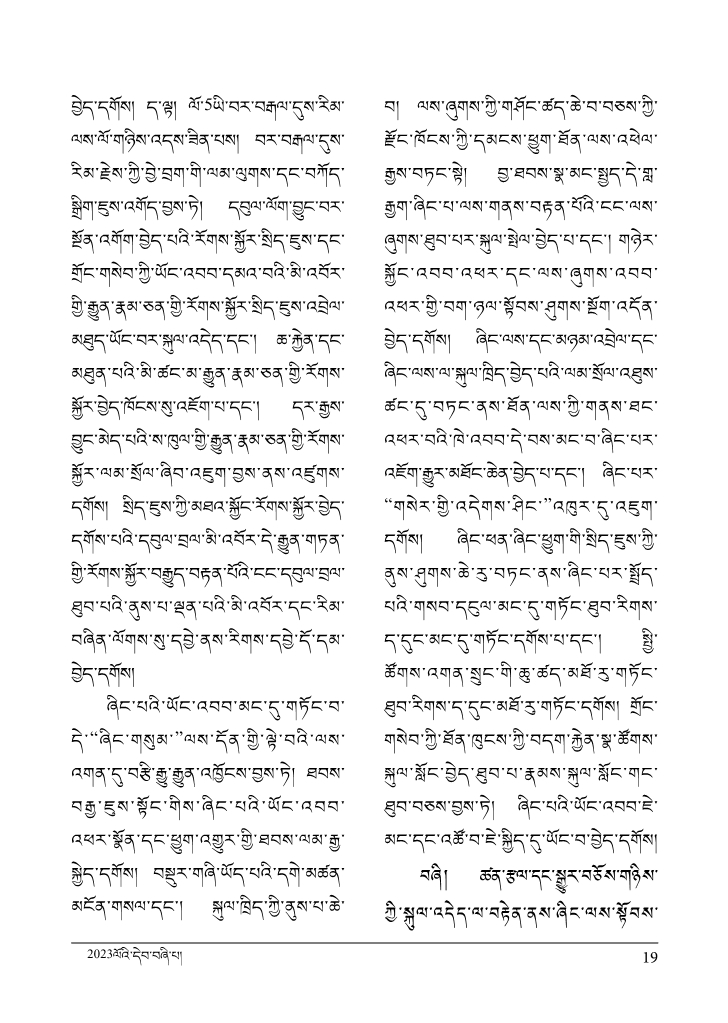 བྱེད་དགོས། ད་ལྟ། ལོ་5ཡི་བར་བརྒལ་དུས་རིམ་
ལས་ལོ་གཉིས་འདས་ཟིན་པས། བར་བརྒལ་དུས་
རིམ་རྗེས་ཀྱི་བྱེ་བྲག་གི་ལམ་ལུགས་དང་བཀོད་
སྒྲིག་ཇུས་འགོད་བྱས་ཏེ། དབུལ་ལོག་བྱུང་བར་
སྔོན་འགོག་བྱེད་པའི་རོགས་སྐྱོར་སྲིད་ཇུས་དང་
གྲོང་གསེབ་ཀྱི་ཡོང་འབབ་དམའ་བའི་མི་འབོར་
གྱི་རྒྱུན་རྣམ་ཅན་གྱི་རོགས་སྐྱོར་སྲིད་ཇུས་འབྲེལ་
མཐུད་ཡོང་བར་སྐུལ་འདེད་དང་། ཆ་རྐྱེན་དང་
མཐུན་པའི་མི་ཚང་མ་རྒྱུན་རྣམ་ཅན་གྱི་རོགས་
སྐྱོར་བྱེད་ཁོངས་སུ་འཇོག་པ་དང་། དར་རྒྱས་
བྱུང་མེད་པའི་ས་ཁུལ་གྱི་རྒྱུན་རྣམ་ཅན་གྱི་རོགས་
སྐྱོར་ལམ་སྲོལ་ཞིབ་འཇུག་བྱས་ནས་འཛུགས་
དགོས། སྲིད་ཇུས་ཀྱི་མཐའ་སྐྱོང་རོགས་སྐྱོར་བྱེད་
དགོས་པའི་དབུལ་བྲལ་མི་འབོར་དེ་རྒྱུན་གཏན་
གྱི་རོགས་སྐྱོར་བརྒྱུད་བརྟན་པོའི་ངང་དབུལ་བྲལ་
ཐུབ་པའི་ནུས་པ་ལྡན་པའི་མི་འབོར་དང་རིམ་
བཞིན་ལོགས་སུ་དབྱེ་ནས་རིགས་དབྱེ་དོ་དམ་
བྱེད་དགོས།
ཞིང་པའི་ཡོང་འབབ་མང་དུ་གཏོང་བ་
དེ་“ཞིང་གསུམ་”ལས་དོན་གྱི་ལྟེ་བའི་ལས་
འགན་དུ་བརྩི་རྒྱུ་རྒྱུན་འཁྱོངས་བྱས་ཏེ། ཐབས་
བརྒྱ་ཇུས་སྟོང་གིས་ཞིང་པའི་ཡོང་འབབ་
འཕར་སྣོན་དང་ཕྱུག་འགྱུར་གྱི་ཐབས་ལམ་རྒྱ་
སྐྱེད་དགོས། བསྡུར་གཞི་ཡོད་པའི་དགེ་མཚན་
མངོན་གསལ་དང་། སྐུལ་ཁྲིད་ཀྱི་ནུས་པ་ཆེ་
བ། ལས་ཞུགས་ཀྱི་གཤོང་ཚད་ཆེ་བ་བཅས་ཀྱི་
རྫོང་ཁོངས་ཀྱི་དམངས་ཕྱུག་ཐོན་ལས་འཕེལ་
རྒྱས་བཏང་སྟེ། བྱ་ཐབས་སྣ་མང་སྤྱད་དེ་གླ་
རྒྱག་ཞིང་པ་ལས་གནས་བརྟན་པོའི་ངང་ལས་
ཞུགས་ཐུབ་པར་སྐུལ་སྤེལ་བྱེད་པ་དང་། གཉེར་
སྐྱོང་འབབ་འཕར་དང་ལས་ཞུགས་འབབ་
འཕར་གྱི་བག་ཉལ་སྟོབས་ཤུགས་སྔོག་འདོན་
བྱེད་དགོས། ཞིང་ལས་དང་མཉམ་འབྲེལ་དང་
ཞིང་ལས་ལ་སྐུལ་ཁྲིད་བྱེད་པའི་ལམ་སྲོལ་འཐུས་
ཚང་དུ་བཏང་ནས་ཐོན་ལས་ཀྱི་གནས་ཐང་
འཕར་བའི་ཁེ་འབབ་དེ་བས་མང་བ་ཞིང་པར་
འཇོག་རྒྱུར་མཐོང་ཆེན་བྱེད་པ་དང་། ཞིང་པར་
“གསེར་གྱི་འདེགས་ཤིང་”འཁུར་དུ་འཇུག་
དགོས། ཞིང་ཕན་ཞིང་ཕྱུག་གི་སྲིད་ཇུས་ཀྱི་
ནུས་ཤུགས་ཆེ་རུ་བཏང་ནས་ཞིང་པར་སྤྲོད་
པའི་གསབ་དངུལ་མང་དུ་གཏོང་ཐུབ་རིགས་
ད་དུང་མང་དུ་གཏོང་དགོས་པ་དང་། སྤྱི་
ཚོགས་འགན་སྲུང་གི་ཆུ་ཚད་མཐོ་རུ་གཏོང་
ཐུབ་རིགས་ད་དུང་མཐོ་རུ་གཏོང་དགོས། གྲོང་
གསེབ་ཀྱི་ཐོན་ཁུངས་ཀྱི་བདག་རྐྱེན་སྣ་ཚོགས་
སྐུལ་སློང་བྱེད་ཐུབ་པ་རྣམས་སྐུལ་སློང་གང་
ཐུབ་བཅས་བྱས་ཏེ། ཞིང་པའི་ཡོང་འབབ་ཇེ་
མང་དང་འཚོ་བ་ཇེ་སྐྱིད་དུ་ཡོང་བ་བྱེད་དགོས།
བཞི། ཚན་རྩལ་དང་སྒྱུར་བཅོས་གཉིས་
ཀྱི་སྐུལ་འདེད་ལ་བརྟེན་ནས་ཞིང་ལས་སྟོབས་
2023ལོའི་དེབ་བཞི་པ།
19